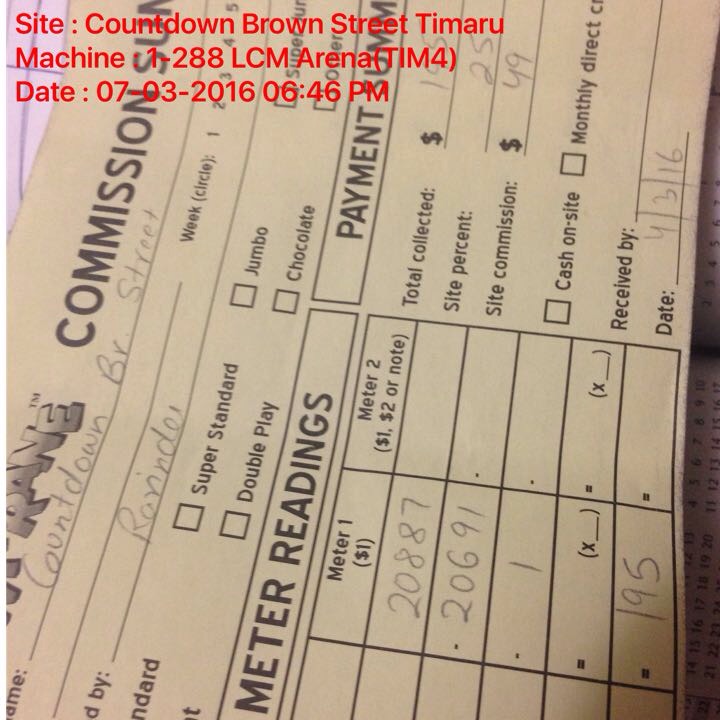 Site : Countdown Brown Street Timaru
Machine : 1-288 LCM Arena(TIM4)
Date : 07-03-2016 06:46 PM
COMMISSION SUM
ame: Countdown Br. Street
d by: Ravinder
Week (circle): 1 2 3 4 5
ndard
Super Standard
Jumbo
Double Play
Chocolate
METER READINGS
Meter 1
($1)
Meter 2
($1, $2 or note)
20887
- 20691 -
- 1 -
= (x__) = (x__)
= 195 =
PAYMENT SUMM
Total collected: $ 195
Site percent: 25
Site commission: $ 49
Cash on-site
Monthly direct cr
Received by:
Date: 4/3/16